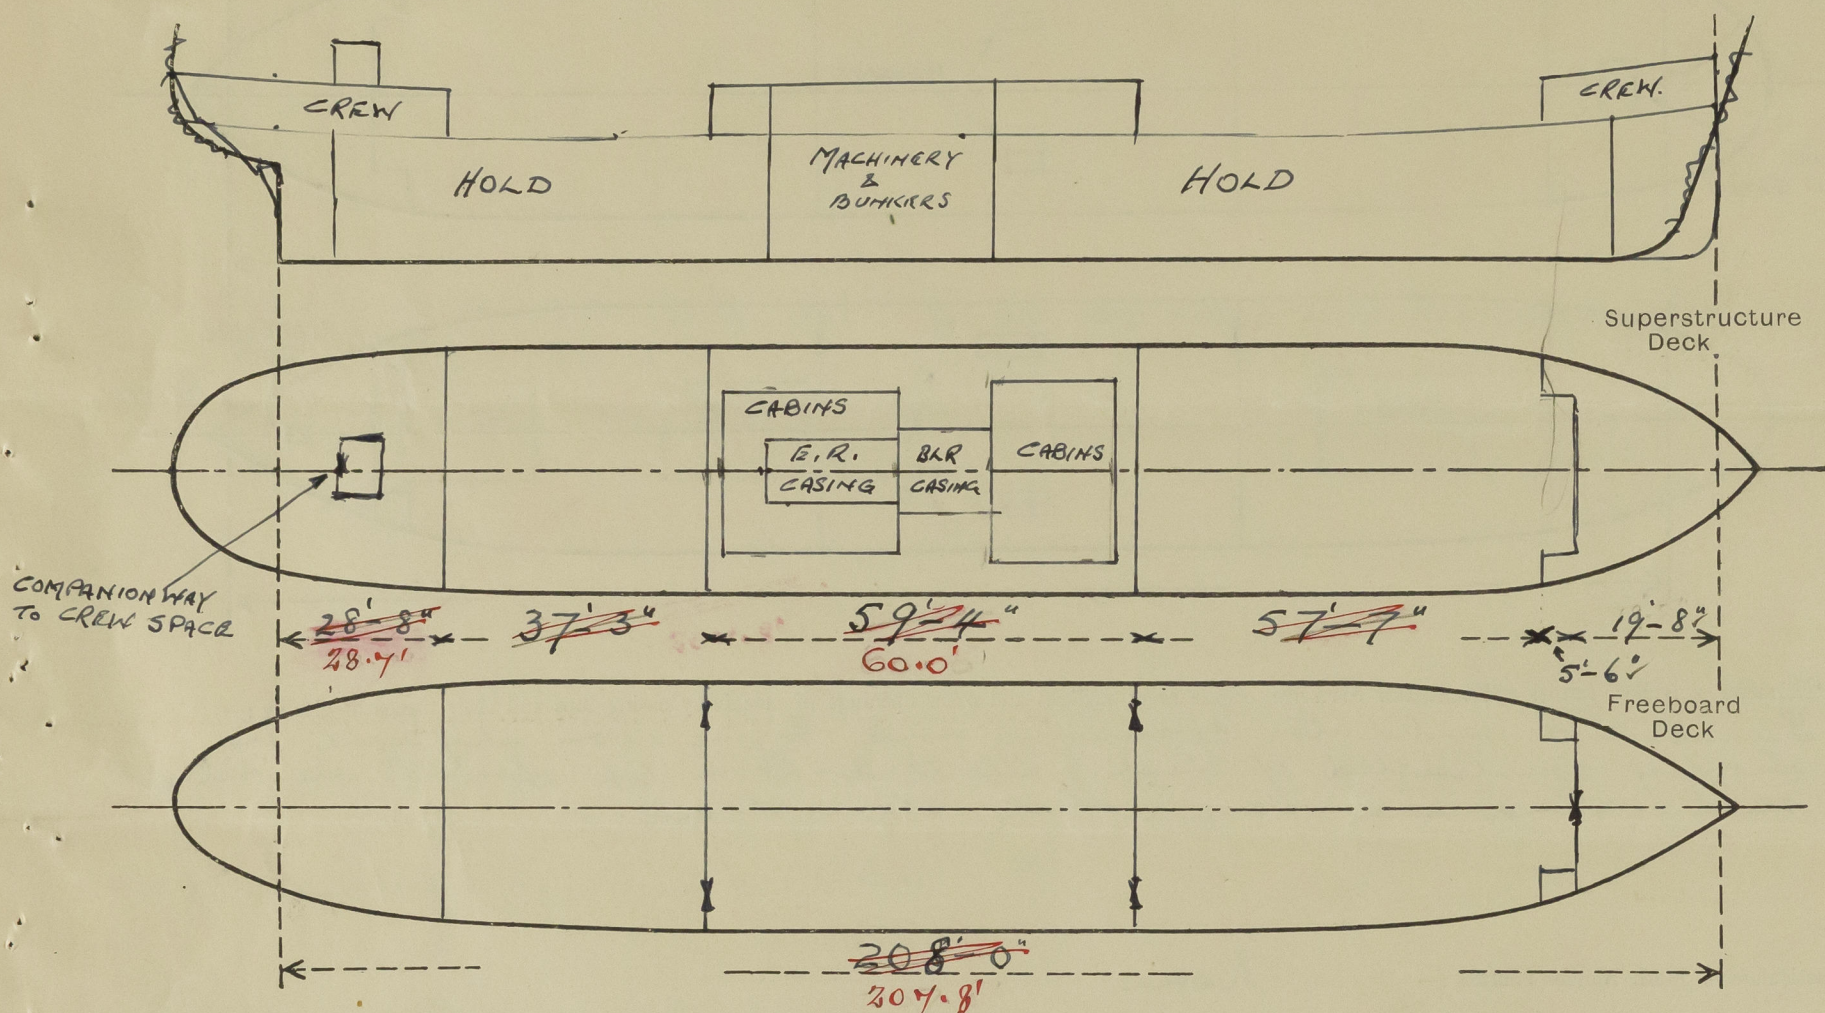 CREW
CREW.
HOLD
MACHINERY
&
BUNKERS
HOLD
Superstructure
Deck.
CABINS
E.R.
CASING
BLR
CASING
CABINS
COMPANION WAY
TO CREW SPACE
28'-8"
37'-3"
59'-4"
57'-7"
19'-8"
28.7'
60.0'
5'-6"
Freeboard
Deck
208'-0"
207.8'